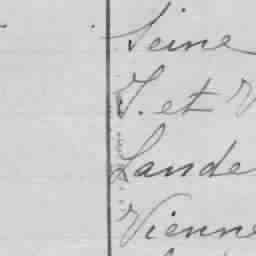 Seine
I. et V
Lande
Vienne